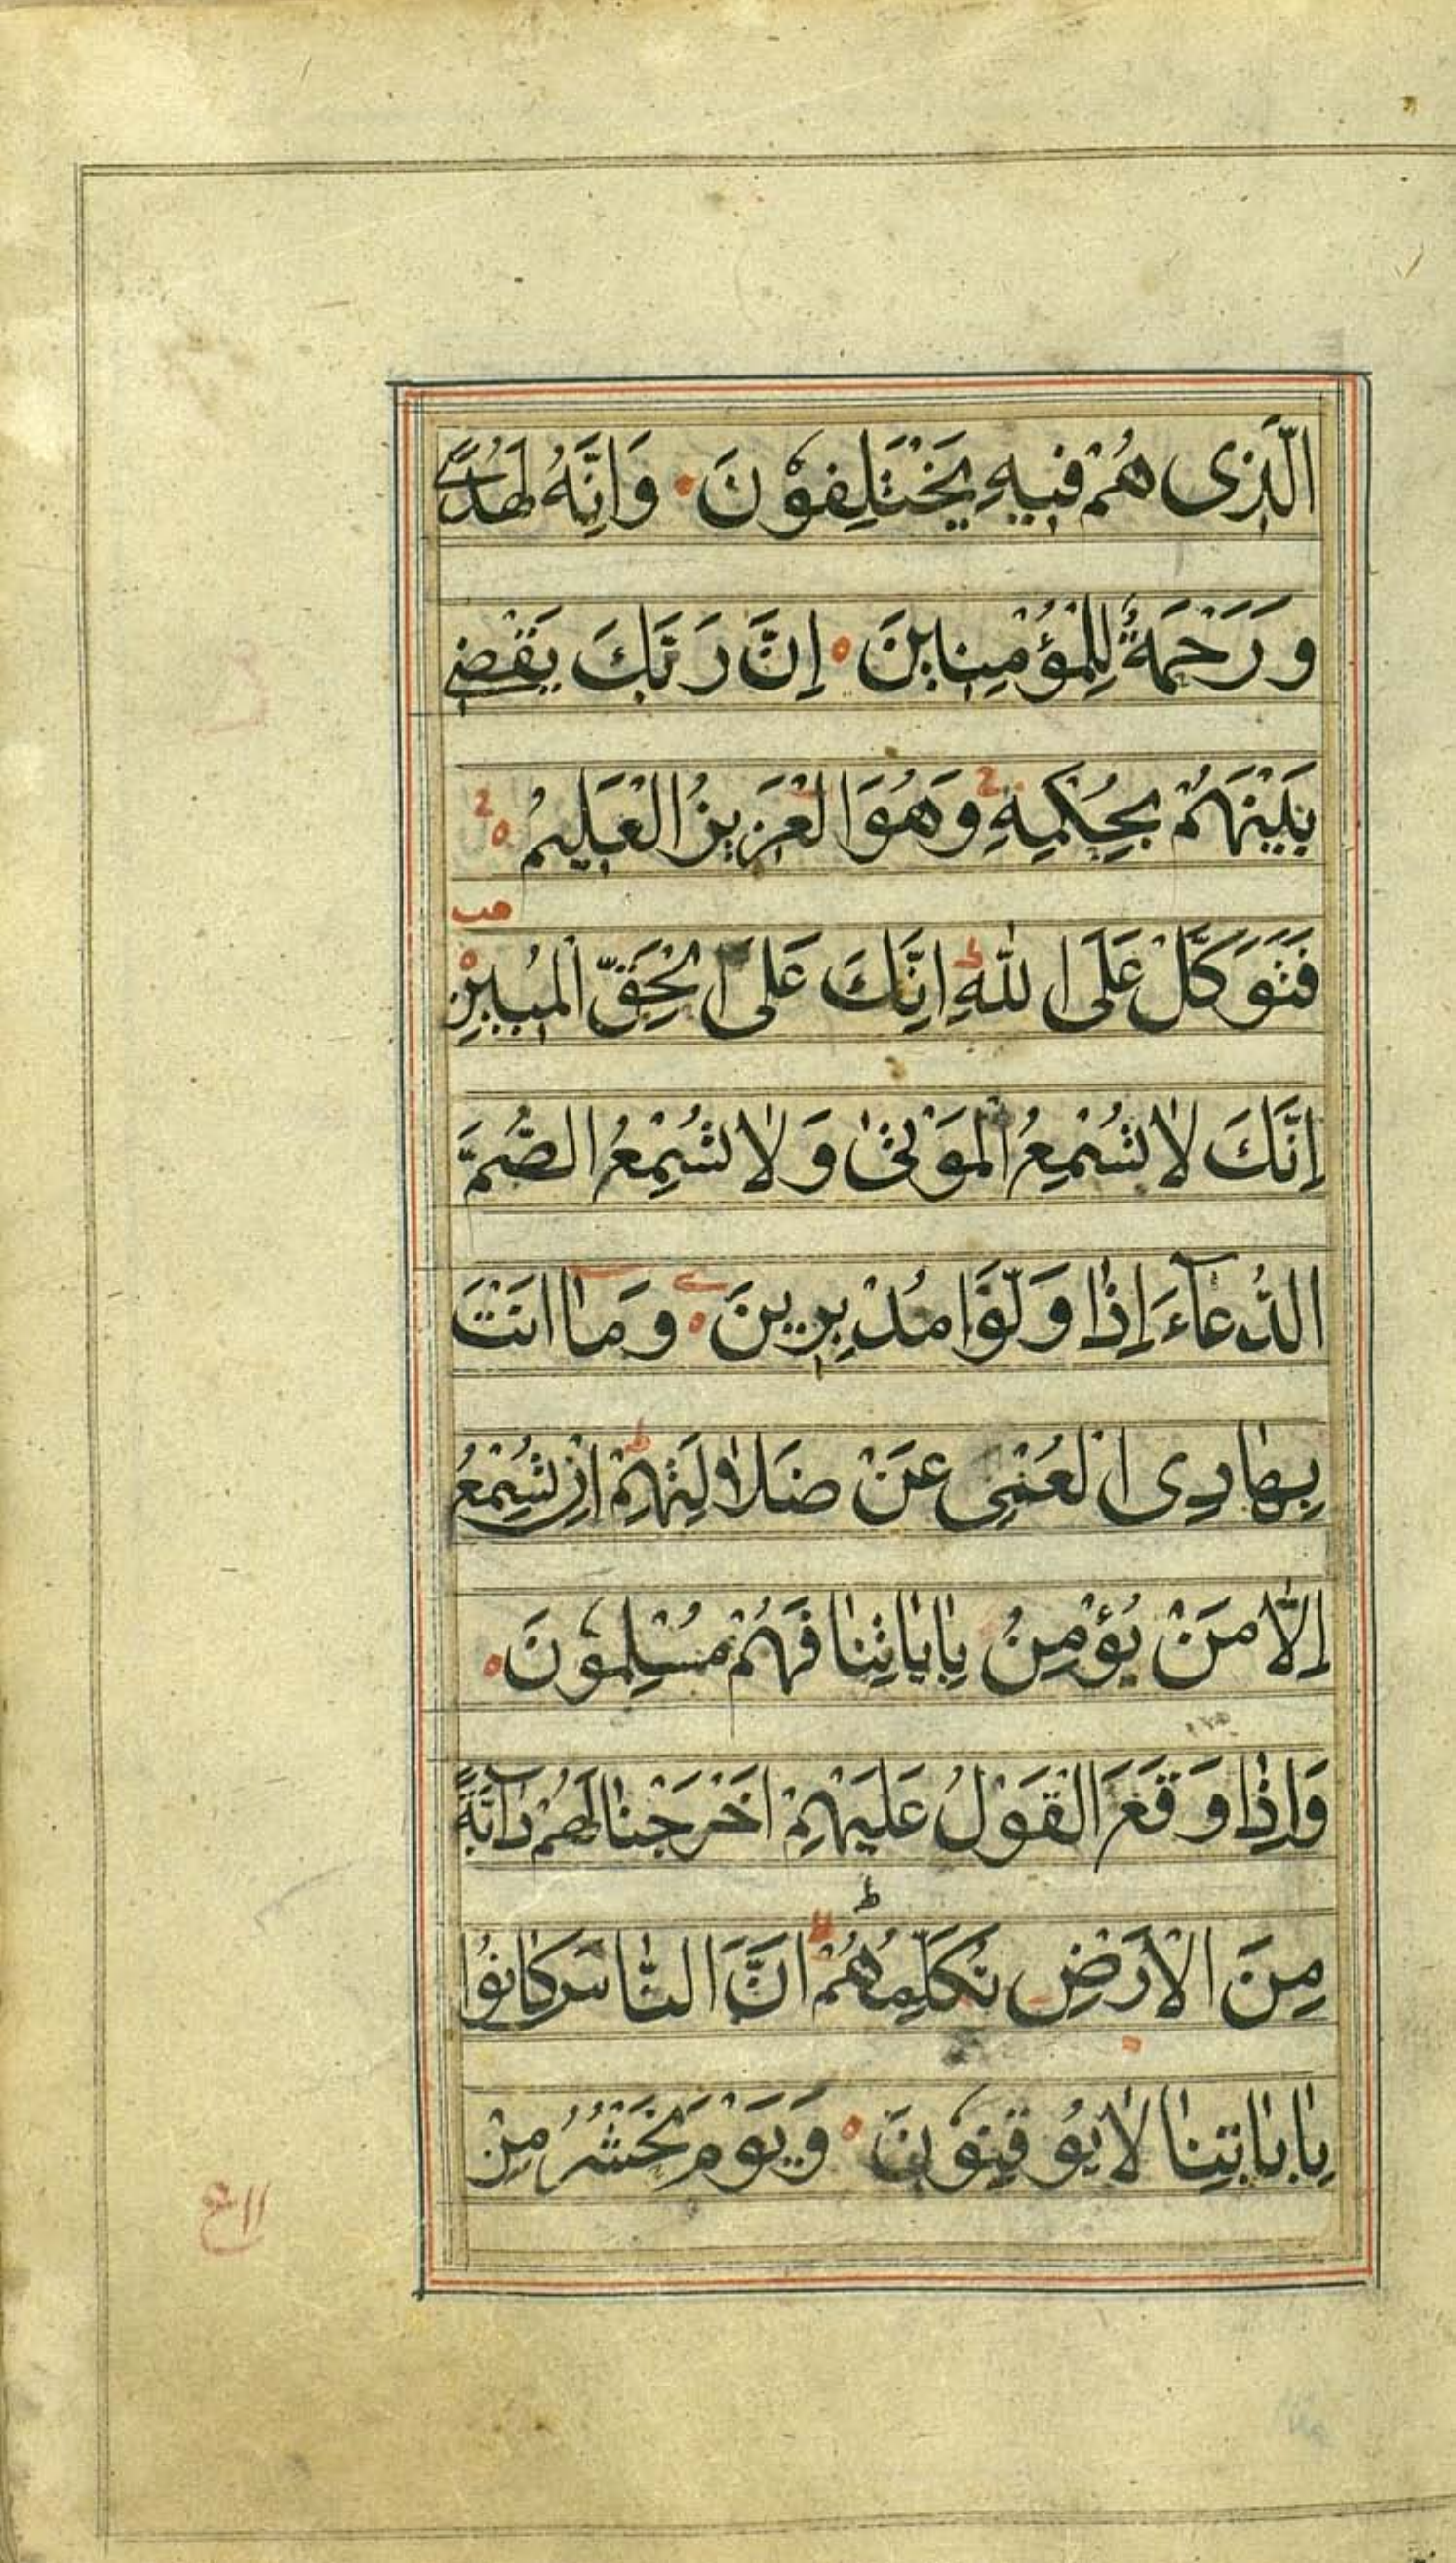 الَّذِى هُمْ فِيهِ يَخْتَلِفُوْنَ وَاِنَّهُ لَهُدًى
وَرَحْمَةٌ لِلْمُؤْمِنِينَ اِنَّ رَبَّكَ يَقْضِى
بَيْنَهُمْ بِحُكْمِهِ وَهُوَ الْعَزِيزُ الْعَلِيمُ
فَتَوَكَّلْ عَلَى اللّٰهِ اِنَّكَ عَلَى الْحَقِّ الْمُبِينِ
اِنَّكَ لَا تُسْمِعُ الْمَوْتىٰ وَلَا تُسْمِعُ الصُّمَّ
الدُّعَآءَ اِذَا وَلَّوْا مُدْبِرِينَ وَمَا اَنْتَ
بِهَادِى الْعُمْىِ عَنْ ضَلَالَتِهِمْ اِنْ تُسْمِعُ
اِلَّا مَنْ يُؤْمِنُ بِاٰيَاتِنَا فَهُمْ مُسْلِمُوْنَ
وَاِذَا وَقَعَ الْقَوْلُ عَلَيْهِمْ اَخْرَجْنَا لَهُمْ دَآبَّةً
مِنَ الْاَرْضِ تُكَلِّمُهُمْ اَنَّ النَّاسَ كَانُوْا
بِاٰيَاتِنَا لَا يُوقِنُوْنَ وَيَوْمَ نَحْشُرُ مِنْ